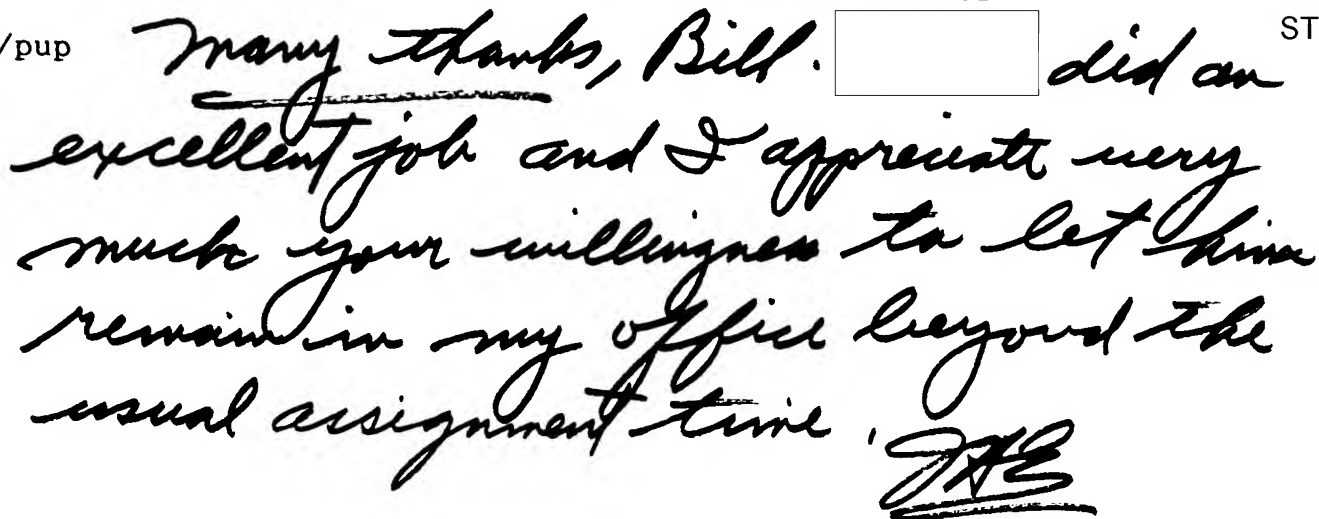 /pup Many thanks, Bill. did an ST
excellent job and I appreciate very
much your willingness to let him
remain in my office beyond the
usual assignment time.